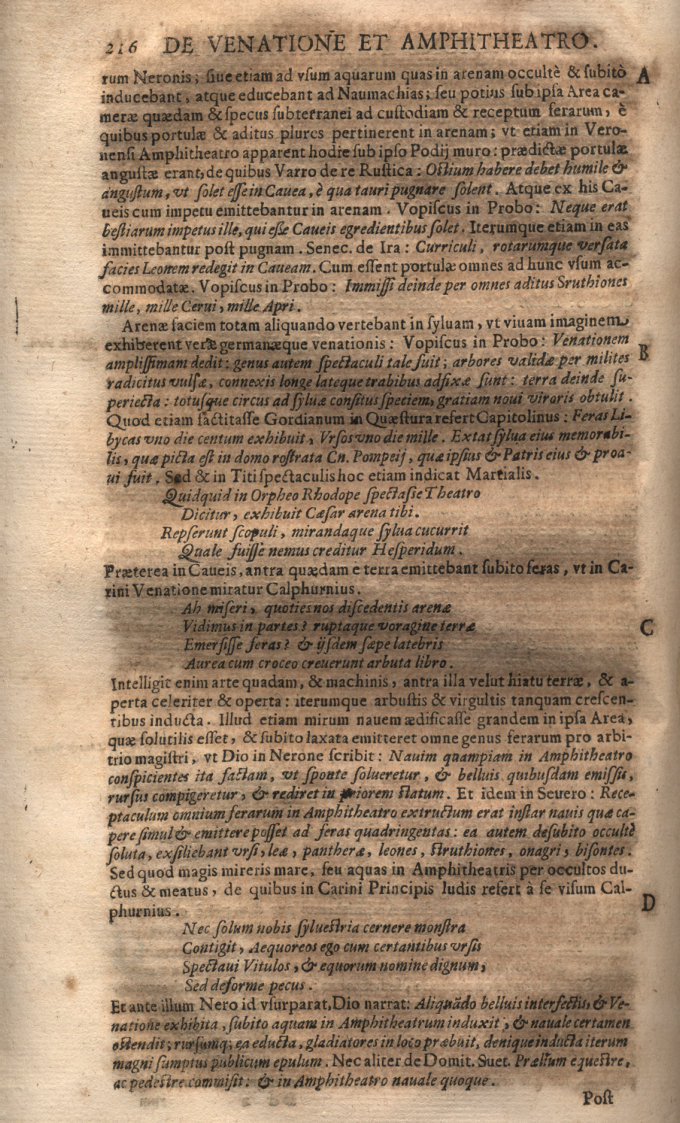 216 DE VENATIONE ET AMPHITHEATRO.
rum Neronis; siue etiam ad vsum aquarum quas in arenam occultè & subitò A
inducebant, atque educebant ad Naumachias; seu potius sub ipsa Area ca-
meræ quædam & specus subterranei ad custodiam & receptum ferarum, è
quibus portulæ & aditus plures pertinerent in arenam; vt etiam in Vero-
nensi Amphitheatro apparent hodie sub ipso Podij muro: prædictæ portulæ
angustæ erant, de quibus Varro de re Rustica: Ostium habere debet humile &
angustum, vt solet esse in Cauea, è qua tauri pugnare solent. Atque ex his Ca-
ueis cum impetu emittebantur in arenam. Vopiscus in Probo: Neque erat
bestiarum impetus ille, qui esse Caueis egredientibus solet. Iterumque etiam in eas
immittebantur post pugnam. Senec. de Ira: Curriculi, rotarumque versata
facies Leonem redegit in Caueam. Cum essent portulæ omnes ad hunc vsum ac-
commodatæ. Vopiscus in Probo: Immissi deinde per omnes aditus Sruthiones
mille, mille Cerui, mille Apri.
Arenæ faciem totam aliquando vertebant in syluam, vt viuam imaginem
exhiberent veræ germanæque venationis: Vopiscus in Probo: Venationem B
amplissimam dedit: genus autem spectaculi tale fuit; arbores validæ per milites
radicitus vulsæ, connexis longe lateque trabibus adfixæ sunt: terra deinde su-
periecta: totusque circus ad syluæ consitus speciem, gratiam noui viroris obtulit.
Quod etiam factitasse Gordianum in Quæstura refert Capitolinus: Feras Li-
bycas vno die centum exhibuit, Vrsos vno die mille. Extat sylua eius memorabi-
lis, quæ picta est in domo rostrata Cn. Pompeij, quæ ipsius & Patris eius & proa-
ui fuit. Sed & in Titi spectaculis hoc etiam indicat Martialis.
Quidquid in Orpheo Rhodope spectasse Theatro
Dicitur, exhibuit Cæsar arena tibi.
Repserunt scopuli, mirandaque sylua cucurrit
Quale fuisse nemus creditur Hesperidum.
Præterea in Caueis, antra quædam e terra emittebant subito feras, vt in Ca-
rini Venatione miratur Calphurnius.
Ah miseri, quoties nos discedentis arenæ
Vidimus in partes? ruptaque voragine terræ C
Emersisse feras? & ijsdem sæpe latebris
Aurea cum croceo creuerunt arbuta libro.
Intelligit enim arte quadam, & machinis, antra illa velut hiatu terræ, & a-
perta celeriter & operta: iterumque arbustis & virgultis tanquam crescen-
tibus inducta. Illud etiam mirum nauem ædificasse grandem in ipsa Area,
quæ solutilis esset, & subito laxata emitteret omne genus ferarum pro arbi-
trio magistri, vt Dio in Nerone scribit: Nauim quampiam in Amphitheatro
conspicientes ita factam, vt sponte solueretur, & belluis quibusdam emissis,
rursus compigeretur, & rediret in priorem statum. Et idem in Seuero: Rece-
ptaculum omnium ferarum in Amphitheatro extructum erat instar nauis quæ ca-
pere simul & emittere posset ad feras quadringentas: ea autem desubito occultè
soluta, exsiliebant vrsi, leæ, pantheræ, leones, struthiones, onagri, bisontes.
Sed quod magis mireris mare, seu aquas in Amphitheatris per occultos du-
ctus & meatus, de quibus in Carini Principis ludis refert à se visum Cal-
phurnius. D
Nec solum nobis syluestria cernere monstra
Contigit, Aequoreos ego cum certantibus vrsis
Spectaui Vitulos, & equorum nomine dignum,
Sed deforme pecus.
Et ante illum Nero id vsurparat, Dio narrat: Aliquãdo belluis interfectis, & Ve-
natione exhibita, subito aquam in Amphitheatrum induxit, & nauale certamen
ostendit; rursumq; ea educta, gladiatores in loco præbuit, denique inducta iterum
magni sumptus publicum epulum. Nec aliter de Domit. Suet. Prælium equestre,
ac pedestre commisit: & in Amphitheatro nauale quoque.
Post